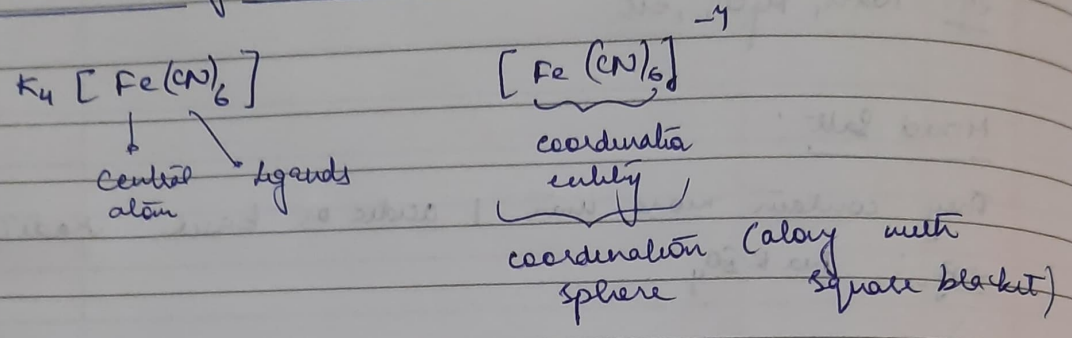 K4 [ Fe (CN)6 ]
[ Fe (CN)6 ] -4
central atom
Ligands
coordination entity
coordination sphere
(along with square bracket)